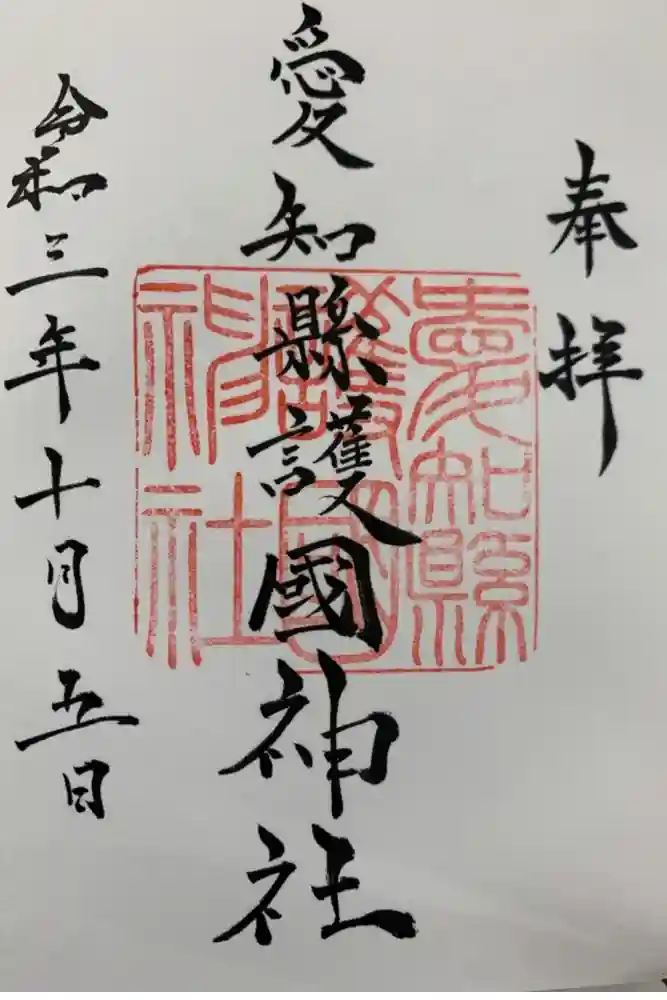 奉拝
愛知縣護國神社
愛知縣護國神社
令和三年十月五日